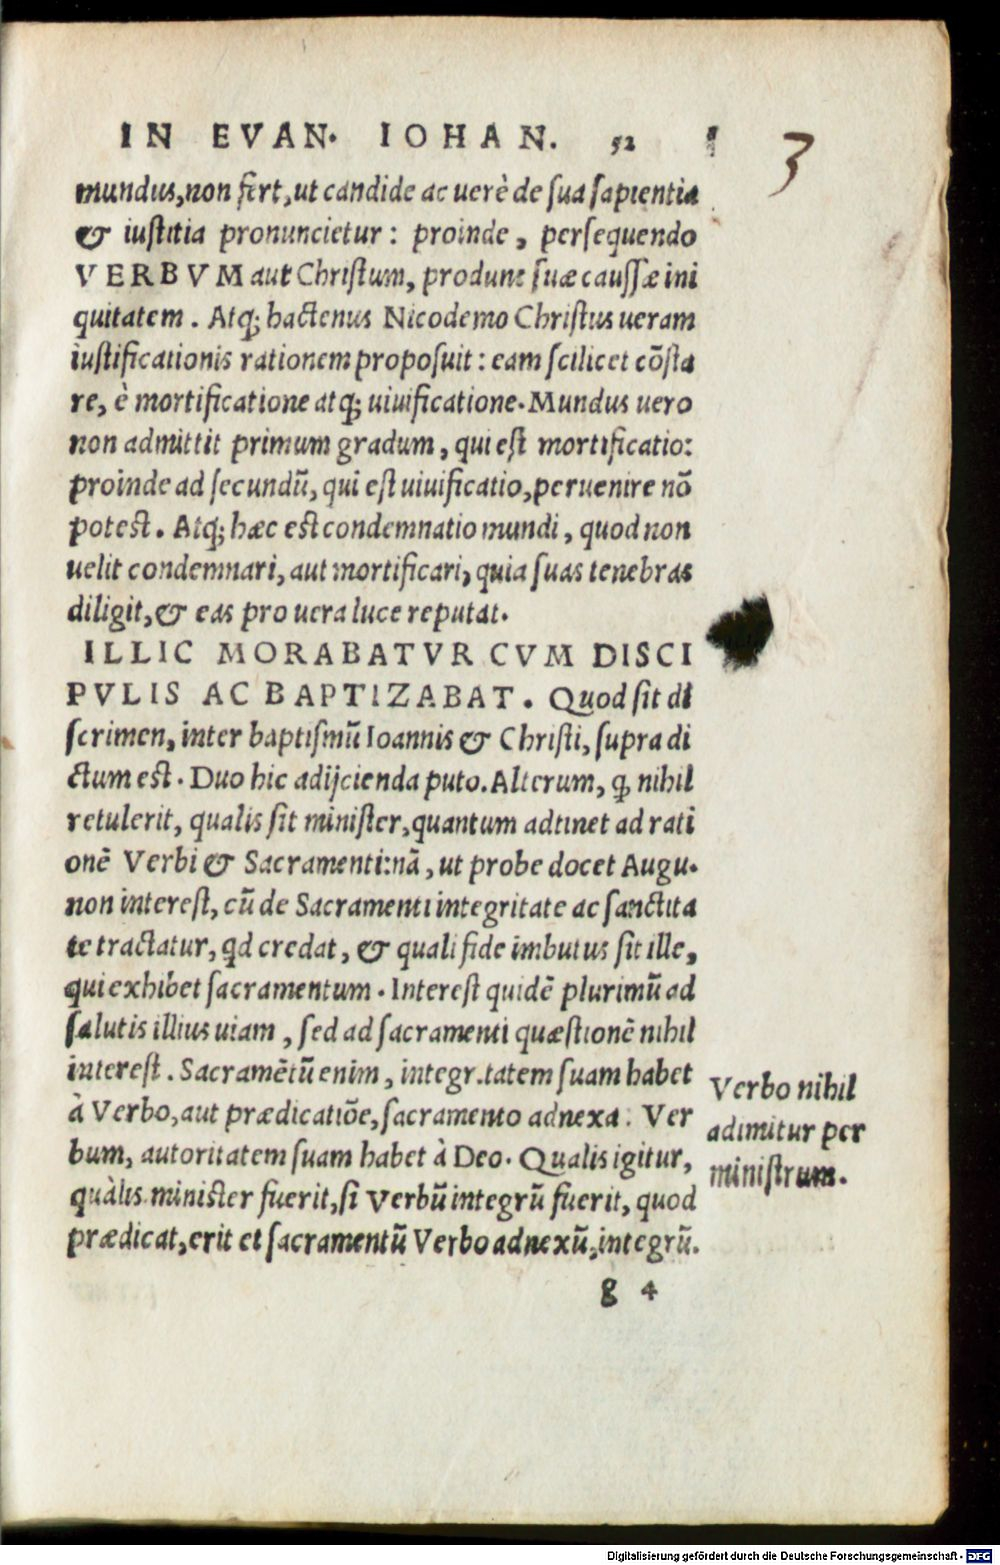 IN EVAN. IOHAN. 52
3
mundus, non fert, ut candide ac uerè de sua sapientia
& iustitia pronuncietur: proinde, persequendo
VERBVM aut Christum, produnt suæ caussæ ini
quitatem. Atq; hactenus Nicodemo Christus ueram
iustificationis rationem proposuit: eam scilicet cōsta
re, è mortificatione atq; uiuificatione. Mundus uero
non admittit primum gradum, qui est mortificatio:
proinde ad secundū, qui est uiuificatio, peruenire nō
potest. Atq; hæc est condemnatio mundi, quod non
uelit condemnari, aut mortificari, quia suas tenebras
diligit, & eas pro uera luce reputat.
ILLIC MORABATVR CVM DISCI
PVLIS AC BAPTIZABAT. Quod sit di
scrimen, inter baptismū Ioannis & Christi, supra di
ctum est. Duo hic adijcienda puto. Alterum, ꝙ nihil
retulerit, qualis sit minister, quantum adtinet ad rati
onē Verbi & Sacramenti: nā, ut probe docet Augu.
non interest, cū de Sacramenti integritate ac sanctita
te tractatur, qd credat, & quali fide imbutus sit ille,
qui exhibet sacramentum. Interest quidē plurimū ad
salutis illius uiam, sed ad sacramenti quæstionē nihil
interest. Sacramētū enim, integritatem suam habet
à Verbo, aut prædicatiōe, sacramento adnexa. Ver
bum, autoritatem suam habet à Deo. Qualis igitur,
quàlis minister fuerit, si Verbū integrū fuerit, quod
prædicat, erit et sacramentū Verbo adnexū, integrū.
Verbo nihil
adimitur per
ministrum.
g 4
Digitalisierung gefördert durch die Deutsche Forschungsgemeinschaft - DFG